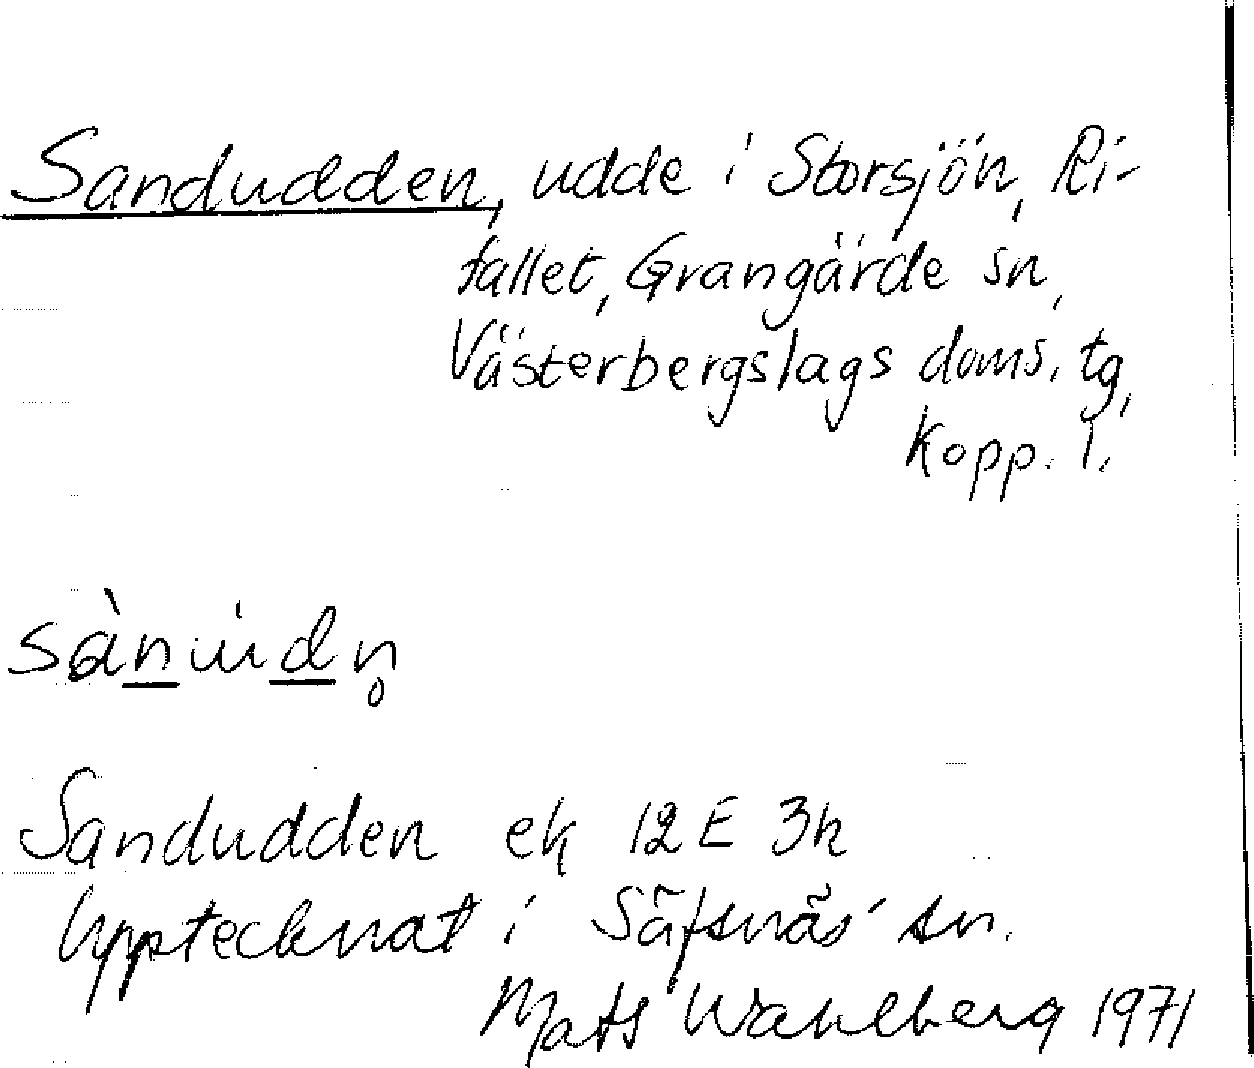 Sandudden, udde i Storsjön, Ri-
fallet, Grangärde sn,
Västerbergslags doms. tg,
Kopp. l.
sànu̇dn̥
Sandudden ek 12 E 3h
Upptecknat i Säfsnäs sn.
Mats Wahlberg 1971